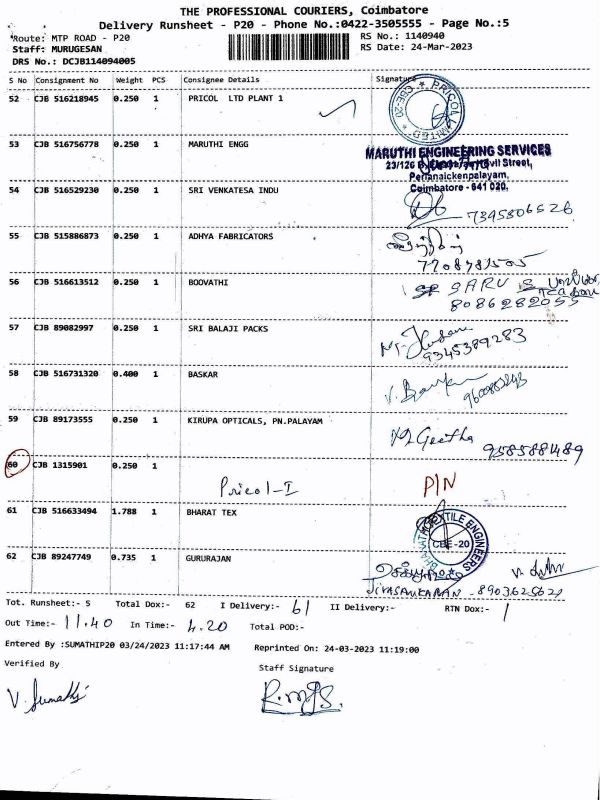 THE PROFESSIONAL COURIERS, Coimbatore
Delivery Runsheet - P20 - Phone No.:0422-3505555 - Page No.:5
*Route: MTP ROAD - P20 RS No.: 1140940
Staff: MURUGESAN RS Date: 24-Mar-2023
DRS No.: DCJB114094005
S No Consignment No Weight PCS Consignee Details Signature
52 CJB 516218945 0.250 1 PRICOL LTD PLANT 1
PRICOL LIMITED * CBE-20 *
53 CJB 516756778 0.250 1 MARUTHI ENGG
MARUTHI ENGINEERING SERVICES
23/126 Street,
Perianaickenpalayam,
Coimbatore - 641 020.
54 CJB 516529230 0.250 1 SRI VENKATESA INDU
7395806626
55 CJB 515886873 0.250 1 ADHYA FABRICATORS
56 CJB 516613512 0.250 1 BOOVATHI
SARU
8086282055
57 CJB 89082997 0.250 1 SRI BALAJI PACKS
9345389283
58 CJB 516731320 0.400 1 BASKAR
59 CJB 89173555 0.250 1 KIRUPA OPTICALS, PN.PALAYAM
Geetha 9585588489
60 CJB 1315901 0.250 1 Pricol-I P/N
61 CJB 516633494 1.788 1 BHARAT TEX
TEXTILE ENGINEERS CBE-20
62 CJB 89247749 0.735 1 GURURAJAN
JIVASANKARAN - 8903625621
Tot. Runsheet:- 5 Total Dox:- 62 I Delivery:- 61 II Delivery:- RTN Dox:- 1
Out Time:- 11.40 In Time:- 4.20 Total POD:-
Entered By :SUMATHIP20 03/24/2023 11:17:44 AM Reprinted On: 24-03-2023 11:19:00
Verified By Staff Signature
V. Sumathi